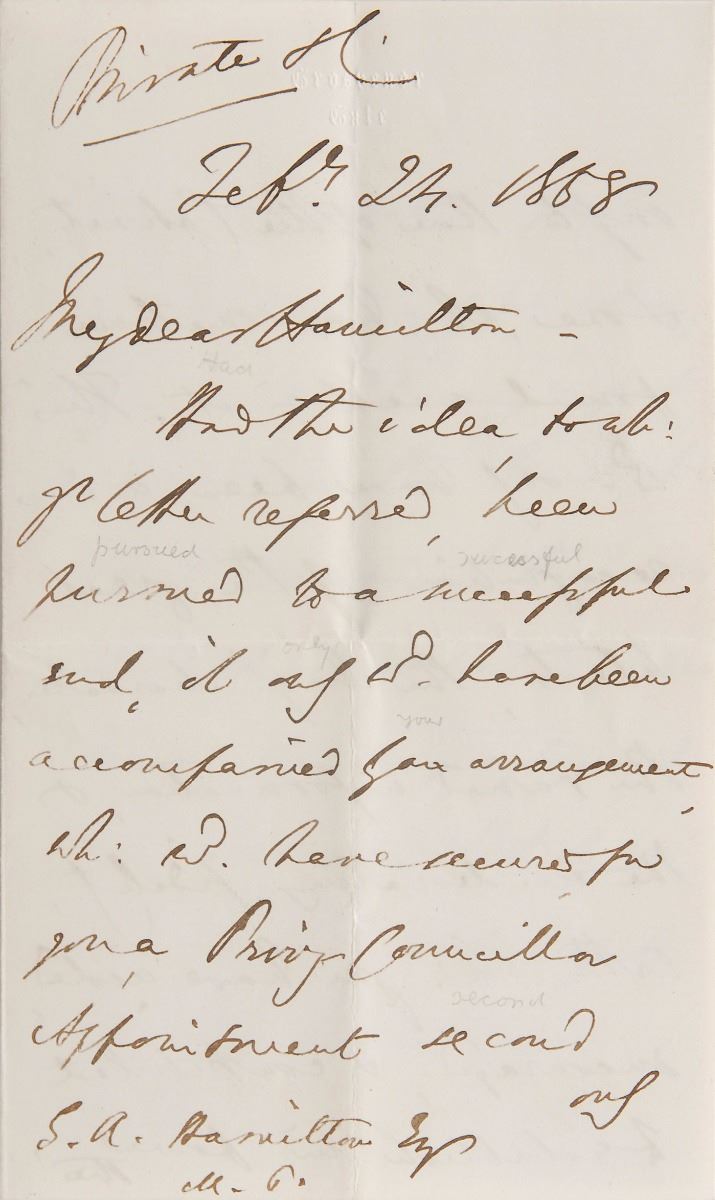 Private
Grosvenor
Gate
Feby. 24. 1868
My dear Hamilton -
Had
Had the idea, to wh:
yr letter referred, been
pursued successful
pursued to a successful
only
end, it only wd. have been
your
accompanied by an arrangement,
wh: wd. have secured for
you, a Privy Councillor
second
Appointment second
only
G. A. Hamilton Esq
M. P.